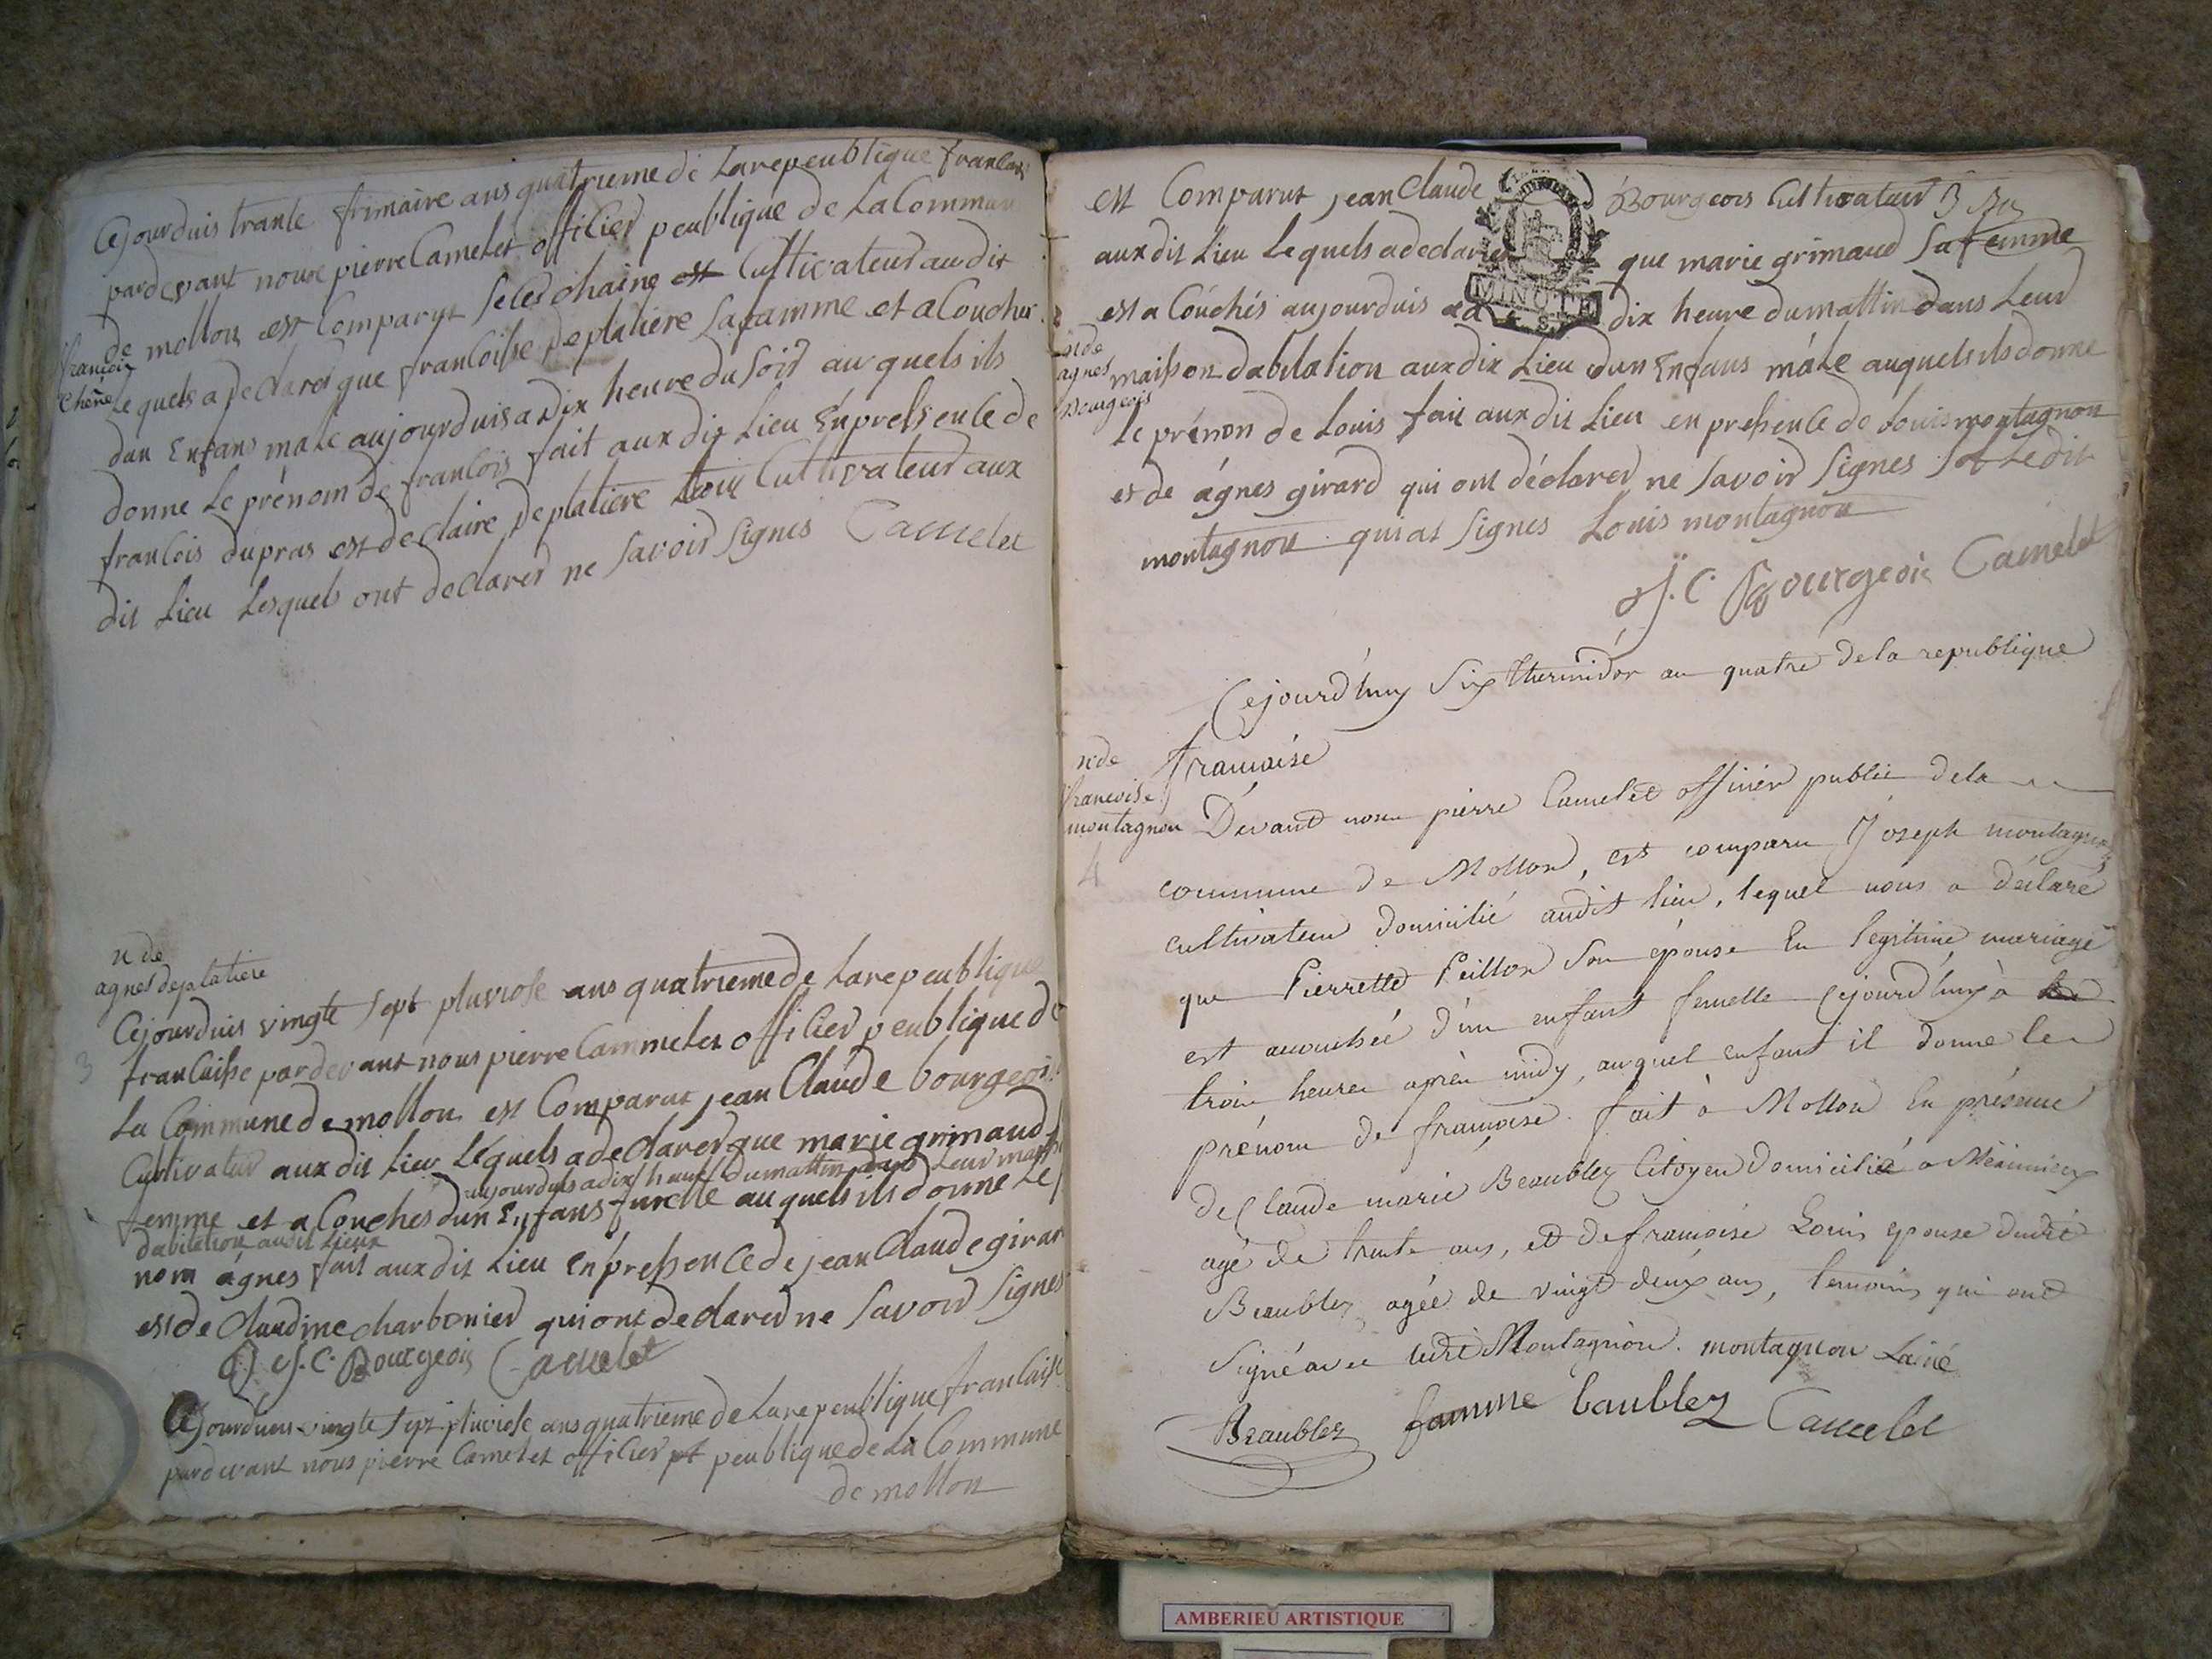 Cejourduis trante frimaire ans quatrieme de Larepeublique francaise
pardevant nous pierre Camelet officier peublique de La Commune
de mollon est Comparut cultivateur audit
francois
Chêne
Lequels a declarer que francoisse deplatiere safamme et a Coucher
dun Enfans male aujourduis a dix heure du soir auquels ils
donne Le prénom de francois fait aux dit Lieu En pressence de
francois dupras est de claire deplatiere Cultivateur aux
dit Lieu Lesquels ont declarer ne savoir signes Camelet
n de
agnes deplatiere
Cejourduis vingte sept pluviose ans quatrieme de Larepeublique
3
francaisse pardevant nous pierre Cammelet officier peublique de
La Commune de mollon est Comparut jean Claude bourgeois
Cultivateur aux dit Lieu Lequels a declarer que marie grimaud sa
aujourduis a dix heure dumattin dans Leur maison
femme et a Couches dun Enfans fumelle auquels ils donne Le
dabitation audit Lieux
nom agnes fait aux dit Lieu En pressence de jean Claude girard
est de Claudine charbonier qui ont declarer ne savoir signes
J. C. Bourgeois Camelet
Cejourduis vingte sept pluviose ans quatrieme de Larepeublique francaisse
pardevant nous pierre Camelet officier peublique de La Commune
de mollon
est Comparut jean Claude Bourgeois Cultivateur
aux dit Lieu Lequels a declarer que marie grimaud sa femme
MINUTE
est a Couchés aujourduis a dix heure du mattin dans Leur
n de
agnes
Bourgeois
maison dabitation aux dit Lieu dun Enfans mâle auquels ils donne
le prénon de Louis fait aux dit Lieu en presence de Louis montagnon
et de agnes girard qui ont déclarer ne savoir signes Ledit
montagnon qui at signes Louis montagnon
J. C. Bourgeois Camelet
Cejourd'huy six thermidor an quatre de la republique
n de
francoise
montagnon
4
françoise
Devant nous pierre Camelet officier public de la
commune de Mollon, est comparu Joseph montagnon
cultivateur domicilié audit lieu, lequel nous a déclaré
que Pierrette Peillon son épouse En legitime mariage
est accouchée d'un enfant femelle cejourd'huy à
trois heures après midy, auquel enfant il donne le
prénom de françoise. fait à Mollon En présence
de Claude marie Beaublez Citoyen domicilié a Meximieux
agé de trente ans, et de françoise Louis epouse dudit
Beaublez agée de vingt deux ans, temoins qui ont
signé avec ledit Montagnon. montagnon Lainé
Beaublez famme baublez Camelet
AMBERIEU ARTISTIQUE